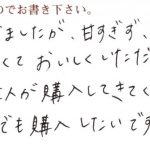 のでお書き下さい。
ましたが、甘すぎず、
くて おいしくいただ
人が購入してきてく
でも購入したいです